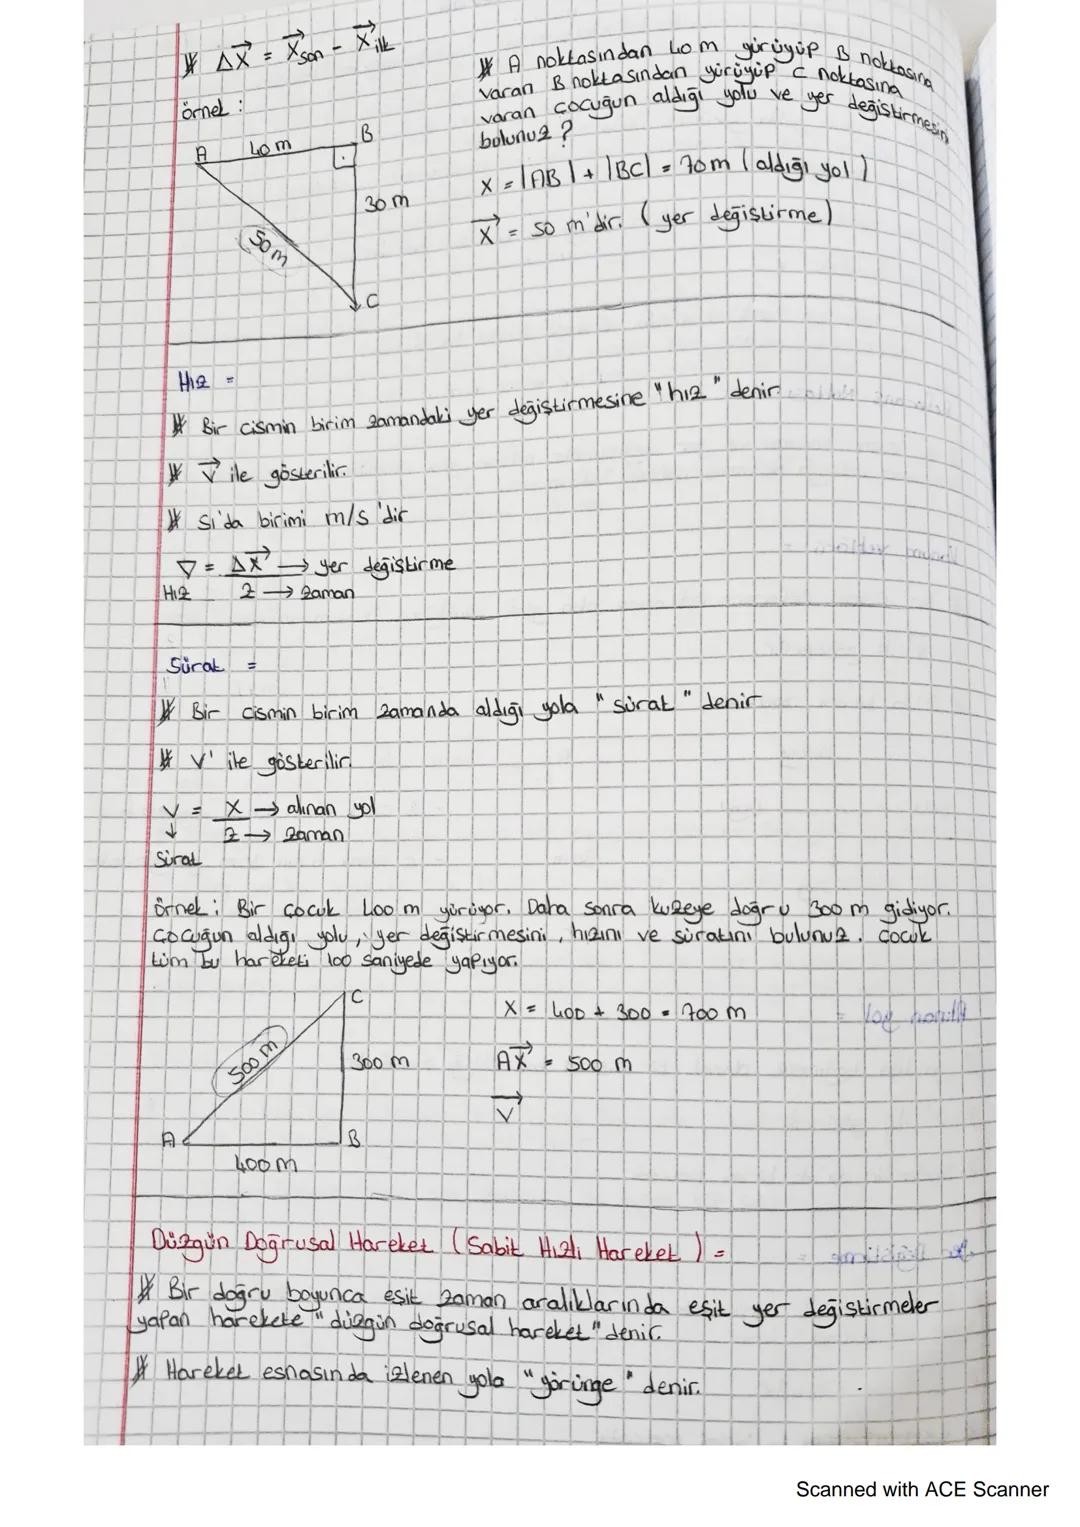 ΔX⃗ = X⃗son - X⃗ilk
örnek :
A 40 m B
30 m
50 m
C
A noktasından 40 m yürüyüp B noktasına
varan B noktasından yürüyüp C noktasına
varan çocuğun aldığı yolu ve yer değiştirmesini
bulunuz ?
X = |AB| + |BC| = 70m (aldığı yol)
X⃗ = 50 m'dir. (yer değiştirme)
Hız =
Bir cismin birim zamandaki yer değiştirmesine "hız" denir.
V⃗ ile gösterilir.
SI'da birimi m/s 'dir
V⃗ = ΔX⃗ → yer değiştirme
Hız z → zaman
Sürat =
Bir cismin birim zamanda aldığı yola "sürat" denir
V' ile gösterilir.
V = X → alınan yol
↓ z → zaman
Sürat
örnek ; Bir çocuk 400 m yürüyor. Daha sonra kuzeye doğru 300 m gidiyor.
Çocuğun aldığı yolu, yer değiştirmesini, hızını ve süratını bulunuz. Çocuk
tüm bu hareketi 100 saniyede yapıyor.
C
500 m
300 m
A B
400 m
X = 400 + 300 = 700 m
ΔX⃗ = 500 m
V⃗
Düzgün Doğrusal Hareket (Sabit Hızlı Hareket) =
Bir doğru boyunca eşit zaman aralıklarında eşit yer değiştirmeler
yapan harekete "düzgün doğrusal hareket" denir.
Hareket esnasında izlenen yola "yörünge" denir.
Scanned with ACE Scanner